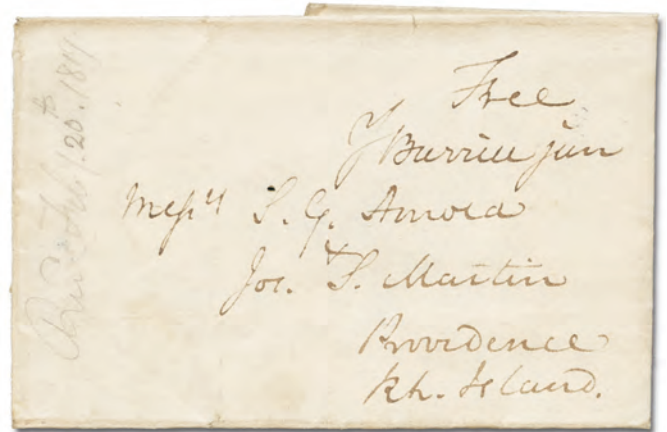 Free
J Burrill jun
Messrs S. G. Arnold
&
Jos. S. Martin
Providence
Rh. Island.
Recd Feb. 20th. 1817.